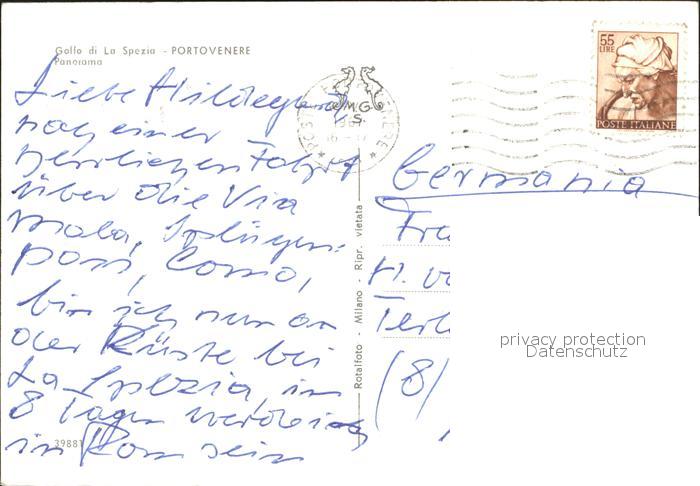 Gollo di La Spezia - PORTOVENERE
Panorama
Liebe Hildegard,
nach einer
herrlichen Fahrt
über die Via
mala, Splügen-
pass, Como,
bin ich nun an
der Küste bei
La Spezia, in
8 Tagen werde ich
in Rom sein
39881
Rotalfoto - Milano - Ripr. vietata
M.G.
S.
55
LIRE
POSTE ITALIANE
Germania
Fra
H. v
Terl
(8)
privacy protection
Datenschutz